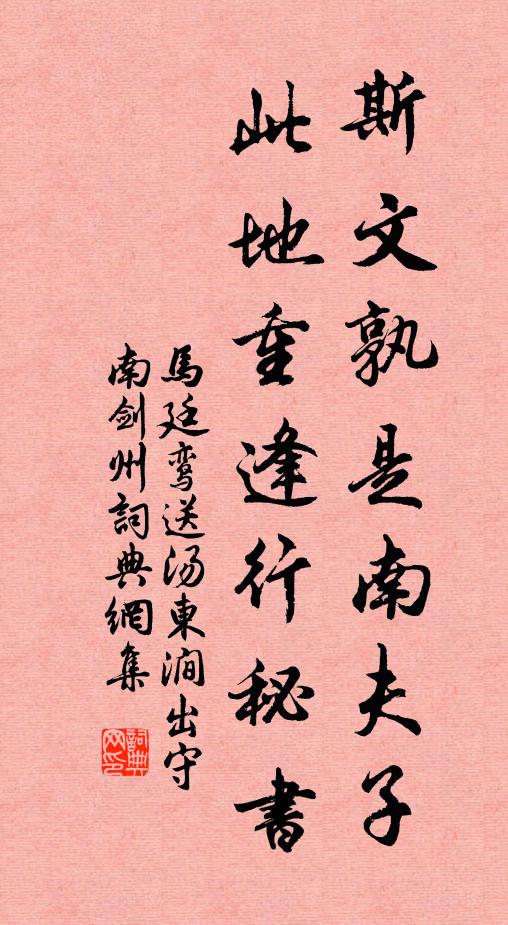 斯文孰是南夫子
此地重逢行秘書
馬廷鸾送汤東澗出守
南劍州詞典網集
詞典网印